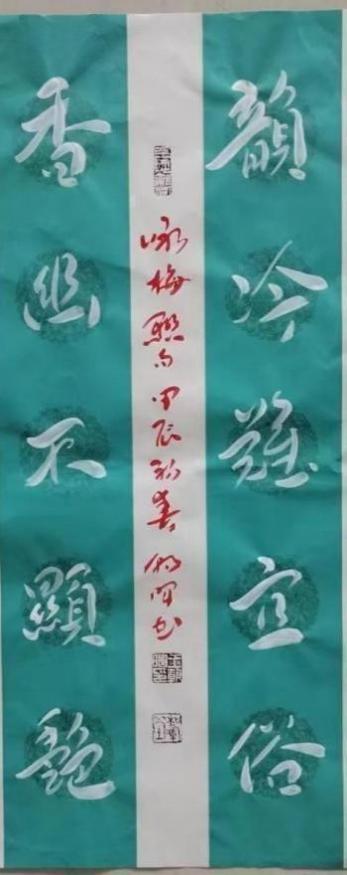 韻冷難宜俗
香幽不顯艷
咏梅聯句甲辰初春